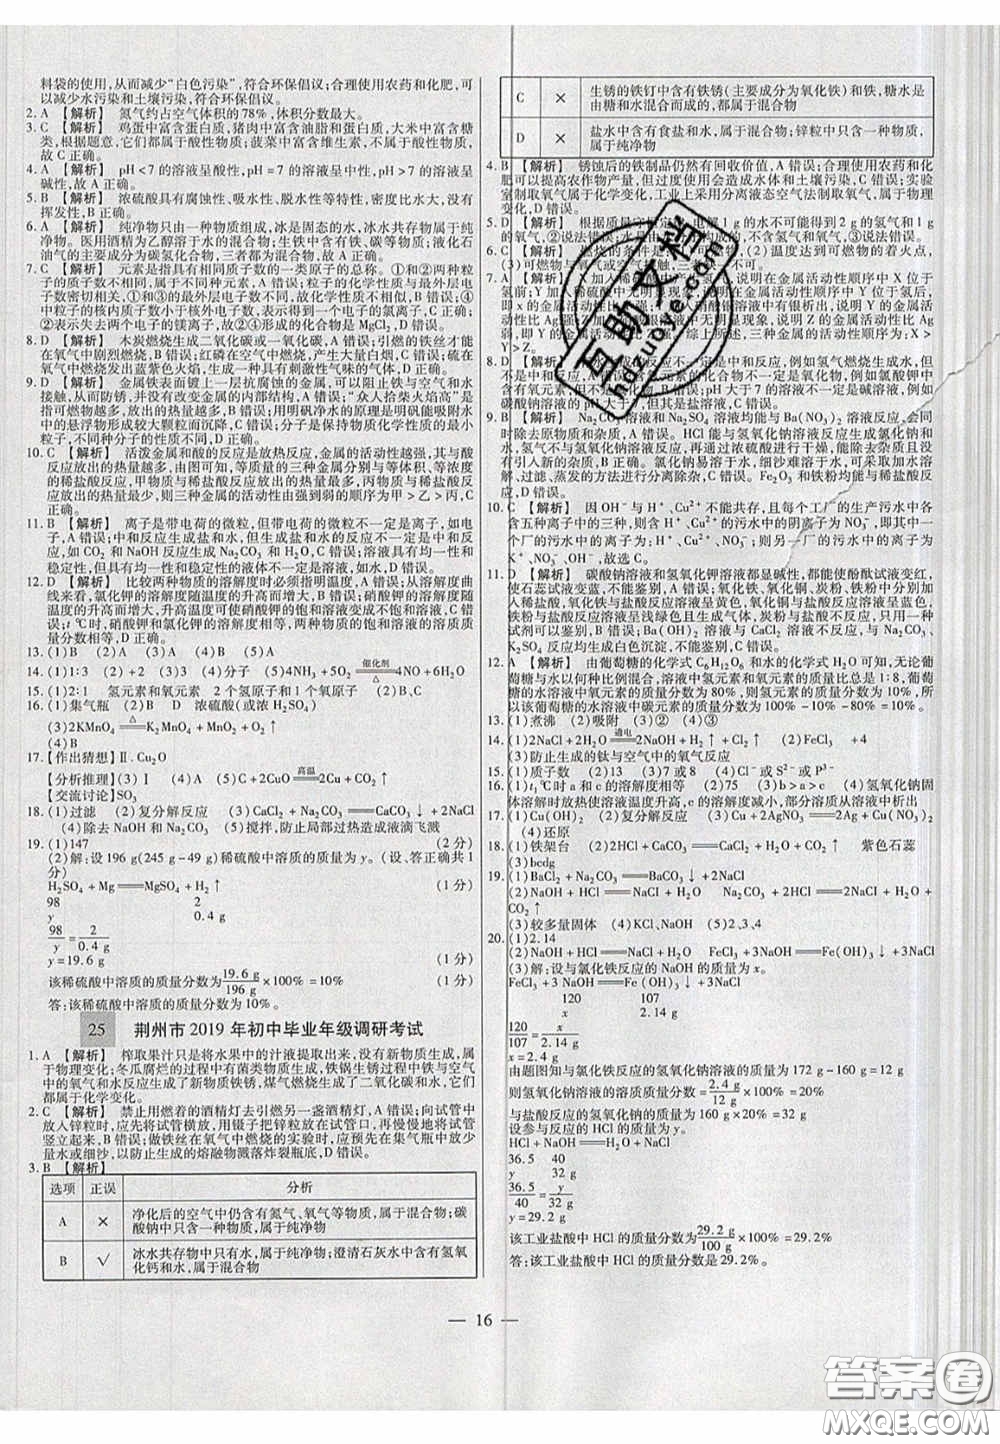 料袋的使用,从而减少“白色污染”,符合环保倡议;合理使用农药和化肥,可
以减少水污染和土壤污染,符合环保倡议。
2. A 【解析】 氮气约占空气体积的78%,体积分数最大。
3. C 【解析】 鸡蛋中富含蛋白质,猪肉中富含油脂和蛋白质,大米中富含糖
类,根据题意,它们都属于酸性物质;菠菜中富含维生素,不属于酸性物质,
故C正确。
4. A 【解析】 pH<7的溶液呈酸性,pH=7的溶液呈中性,pH>7的溶液呈
碱性,故A正确。
5. B 【解析】 浓硫酸具有腐蚀性、吸水性、脱水性等特性,密度比水大,没有
挥发性,B正确。
6. A 【解析】 纯净物只由一种物质组成,冰是固态的水,只由水组成,属于纯
净物。医用酒精为乙醇溶于水的混合物;生铁中含有铁、碳等物质;液化石
油气的主要成分为碳氢化合物,三者都为混合物。故A正确。
7. C 【解析】 元素是指具有相同质子数的一类原子的总称。①和②两种粒
子的质子数不相同,属于不同种元素,A错误;粒子的化学性质与最外层电
子数密切相关,①与③的最外层电子数不同,故化学性质不相似,B错误;④
中粒子的核内质子数小于核外电子数,表示得到一个电子的氯离子,C正
确;②表示失去两个电子的镁离子,故②④形成的化合物是MgCl₂,D错误。
8. D 【解析】 木炭燃烧生成二氧化碳或一氧化碳,A错误;引燃的铁丝才能
在氧气中剧烈燃烧,B错误;红磷在空气中燃烧,产生大量白烟,C错误;硫在
氧气中燃烧发出蓝紫色火焰,生成一种具有刺激性气味的气体,D正确。
9. D 【解析】 金属铁表面镀上一层抗腐蚀的金属,可以阻止铁与空气和水
接触,从而防锈,并没有改变金属的内部结构,A错误;“众人拾柴火焰高”是
指可燃物越多,放出的热量越多,B错误;用明矾净水的原理是明矾能吸附水
中的悬浮物形成较大颗粒而沉降,C错误;分子是保持物质化学性质的最小
粒子,不同种分子的性质不同,D正确。
10. C 【解析】 活泼金属和酸的反应是放热反应,金属的活动性越强,其与酸
反应放出的热量越多,由图可知,等质量的三种金属分别与等体积、等浓度
的稀盐酸反应,甲物质与稀盐酸反应放出的热量最多,丙物质与稀盐酸反应
放出的热量最少,则三种金属的活动性由强到弱的顺序为甲>乙>丙,C
正确。
11. B 【解析】 离子是带电荷的微粒,但带电荷的微粒不一定是离子,如电
子,A错误;中和反应生成盐和水,但生成盐和水的反应不一定是中和反
应,如CO₂和NaOH反应生成Na₂CO₃和H₂O,C错误;溶液具有均一性和
稳定性,但具有均一性和稳定性的液体不一定是溶液,如水,D错误。
12. D 【解析】 比较两种物质的溶解度时必须指明温度,A错误;从溶解度曲
线来看,氯化钾的溶解度随温度的升高而增大,B错误;硝酸钾的溶解度随
温度的升高而增大,升高温度可使硝酸钾的饱和溶液变成不饱和溶液,C错
误;t ℃时,硝酸钾和氯化钾的溶解度相等,两种物质的饱和溶液的溶质质
量分数相等,D正确。
13. (1)B (2)A (3)C (4)D
14. (1)1:3 (2)+2 (3)3 (4)分子 (5)4NH₃+5O₂ 催化剂 4NO+6H₂O
15. (1)2:1 氢元素和氧元素 2个氢原子和1个氧原子 (2)B、C
16. (1)集气瓶 (2)B D 浓硫酸(或浓H₂SO₄)
(3)2KMnO₄ △ K₂MnO₄+MnO₂+O₂↑
(4)B
17. 【作出猜想】Ⅱ. Cu₂O
【分析推理】(3)Ⅰ (4)A (5)C+2CuO 高温 2Cu+CO₂↑
【交流讨论】SO₃
18. (1)过滤 (2)复分解反应 (3)CaCl₂+Na₂CO₃══CaCO₃↓+2NaCl
(4)除去NaOH和Na₂CO₃ (5)搅拌,防止局部过热造成液滴飞溅
19. (1)147 (2分)
(2)解:设196 g(245 g-49 g)稀硫酸中溶质的质量为y。(设、答正确共1
分)
H₂SO₄+Mg══MgSO₄+H₂↑ (1分)
98 2
y 0.4 g
98/y=2/0.4 g
y=19.6 g (1分)
该稀硫酸中溶质的质量分数为19.6 g/196 g×100%=10% (1分)
答:该稀硫酸中溶质的质量分数为10%。
25 荆州市2019年初中毕业年级调研考试
1. A 【解析】 榨取果汁只是将水果中的汁液提取出来,没有新物质生成,属
于物理变化;冬瓜腐烂的过程中有菌类物质生成,铁锅生锈过程中铁与空气
中的氧气和水反应生成了新物质铁锈,煤气燃烧生成了二氧化碳和水,它们
都属于化学变化。
2. C 【解析】 禁止用燃着的酒精灯去引燃另一盏酒精灯,A错误;向试管中
放入锌粒时,应先将试管横放,用镊子把锌粒放在试管口,再慢慢地将试管
竖立起来,B错误;做铁丝在氧气中燃烧的实验时,应预先在集气瓶中放少
量水或细沙,以防止生成的熔融物溅落炸裂瓶底,D错误。
3. B 【解析】
选项 正误 分析
A × 净化后的空气中仍含有氮气、氧气等物质,属于混合物;碳
酸钠中只含一种物质,属于纯净物
B √ 冰水共存物中只有水,属于纯净物;澄清石灰水中含有氢氧
化钙和水,属于混合物
C × 生锈的铁钉中含有铁锈(主要成分为氧化铁)和铁,糖水是
由糖和水混合而成的,都属于混合物
D × 盐水中含有食盐和水,属于混合物;锌粒中只含一种物质,
属于纯净物
4. B 【解析】 锈蚀后的铁制品仍然有回收价值,A错误;合理使用农药和化
肥可以提高农作物产量,但过度使用会造成水体和土壤污染,C错误;实验
室制取氧气属于化学变化,工业上采用分离液态空气法制取氧气,属于物理
变化,D错误。
5. D 【解析】 根据质量守恒定律,电解1 g的水不可能得到2 g的氢气和1 g
的氧气,②说法错误;水由水分子构成的,不含氢气和氧气,③说法错误。
6. C 【解析】 燃烧的条件是:(1)可燃物,(2)温度达到可燃物的着火点,
(3)可燃物与氧气或空气接触,三
7. A 【解析】 Y加入稀硫酸中有气泡产生,说明在金属活动性顺序中Y位于
氢前;Y加入稀硫酸中无明显现象,说明在金属活动性顺序中X位于氢后,
即X的金属活动性比氢弱;X加入硝酸银溶液中有明显现象,说明X的金属活
动性比Ag强;Z加入硝酸银溶液中无明显现象,说明Z的金属活动性比Ag
弱,即Y的金属活动性最强,X的金属活动性次之,Z的金属活动性最弱,即X
>Y>Z。
8. D 【解析】 反应不一定是中和反应,例如氢气燃烧生成水,但
不是中和反应,A错误;含有氧元素的物质不一定是氧化物,例如氯酸钾中
含有氧元素,但不是氧化物,B错误;pH大于7的溶液不一定是碱溶液,例如
碳酸钠溶液的pH大于7,但其是盐溶液,C错误。
9. B 【解析】 Na₂CO₃溶液和Na₂SO₄溶液均能与Ba(NO₃)₂溶液反应,会同
时除去原物质和杂质,A错误。HCl能与氢氧化钠溶液反应生成氯化钠和
水,氢气不与氢氧化钠溶液反应,再通过浓硫酸干燥,能除去杂质且没
有引入新的杂质,B正确。氯化钠易溶于水,细沙难溶于水,可采取加水溶
解、过滤、蒸发的方法进行分离除杂,C错误。Fe₂O₃和铁粉均能与稀盐酸反
应,D错误。
10. C 【解析】 因OH⁻与H⁺、Cu²⁺不能共存,且每个工厂的生产污水中各
含五种离子中的三种,则含H⁺、Cu²⁺的污水中的阴离子为NO₃⁻,即其中一
个厂的污水中的离子为H⁺、Cu²⁺、NO₃⁻;则另一厂的污水中的离子为
K⁺、OH⁻、NO₃⁻,故选C。
11. D 【解析】 碳酸钠溶液和氢氧化钾溶液都显碱性,都能使酚酞试液变红,
使石蕊试液变蓝,不能鉴别,A错误;氧化铁、氧化铜、炭粉、铁粉中分别加
入稀盐酸,氧化铁与盐酸反应溶液呈黄色,氧化铜与盐酸反应溶液呈蓝色,
铁粉与盐酸反应溶液呈浅绿色且生成气体,炭粉与盐酸不反应,只用一种
试剂可以鉴别,B错误;Ba(OH)₂溶液与CaCl₂溶液不反应,Ba(OH)₂与
K₂SO₄反应均生成白色沉淀,不能鉴别,C错误。
12. A 【解析】 由葡萄糖的化学式C₆H₁₂O₆和水的化学式H₂O可知,无论葡
萄糖与水以何种比例混合,溶液中氢元素和氧元素的质量比总是1:8,葡萄
糖的水溶液中氧元素的质量分数为80%,则氢元素的质量分数为10%,所
以该葡萄糖的水溶液中碳元素的质量分数为100%-10%-80%=10%。
13. (1)煮沸 (2)吸附 (3)② (4)③
14. (1)2NaCl+2H₂O 通电 2NaOH+H₂↑+Cl₂↑ (2)FeCl₃ +4
(3)防止生成的钛与空气中的氧气反应
15. (1)质子数 (2)13 (3)7或8 (4)Cl⁻或S²⁻或P³⁻
16. (1)t₁℃时a和c的溶解度相等 (2)75 (3)b>a>c (4)氢氧化钠固
体溶解时放热使溶液温度升高,c的溶解度减小,部分溶质从溶液中析出
17. (1)Cu(OH)₂ (2)复分解反应 (3)Cu+2AgNO₃══2Ag+Cu(NO₃)₂
(4)还原
18. (1)铁架台 (2)2HCl+CaCO₃══CaCl₂+H₂O+CO₂↑ 紫色石蕊
(3)bcdg
19. (1)BaCl₂+Na₂CO₃══BaCO₃↓+2NaCl
(2)NaOH+HCl══NaCl+H₂O Na₂CO₃+2HCl══2NaCl+H₂O+
CO₂↑
(3)较多量固体 (4)KCl、NaOH (5)2、3、4
20. (1)2.14
(2)NaOH+HCl══NaCl+H₂O FeCl₃+3NaOH══Fe(OH)₃↓+3NaCl
(3)解:设与氯化铁反应的NaOH的质量为x。
FeCl₃+3NaOH══Fe(OH)₃↓+3NaCl
120 107
x 2.14 g
120/107=x/2.14 g
x=2.4 g
由题图知与氯化铁反应的氢氧化钠溶液的质量为172 g-160 g=12 g
则氢氧化钠溶液的溶质质量分数=2.4 g/12 g×100%=20%
与盐酸反应的氢氧化钠的质量为160 g×20%=32 g
设参与反应的氯化氢的质量为y。
HCl+NaOH══NaCl+H₂O
36.5 40
y 32 g
36.5/40=y/32 g
y=29.2 g
该工业盐酸中HCl的质量分数为29.2 g/100 g×100%=29.2%
答:该工业盐酸中HCl的质量分数为29.2%。
— 16 —
互助文档
hdzuoye.com
答案圈
MXQE.COM